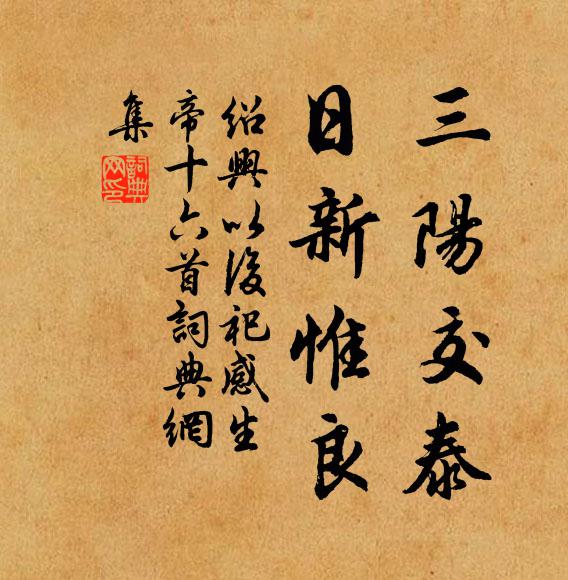 三陽交泰
日新惟良
紹興以後祀感生
帝十六首詞典網
集
詞典網印